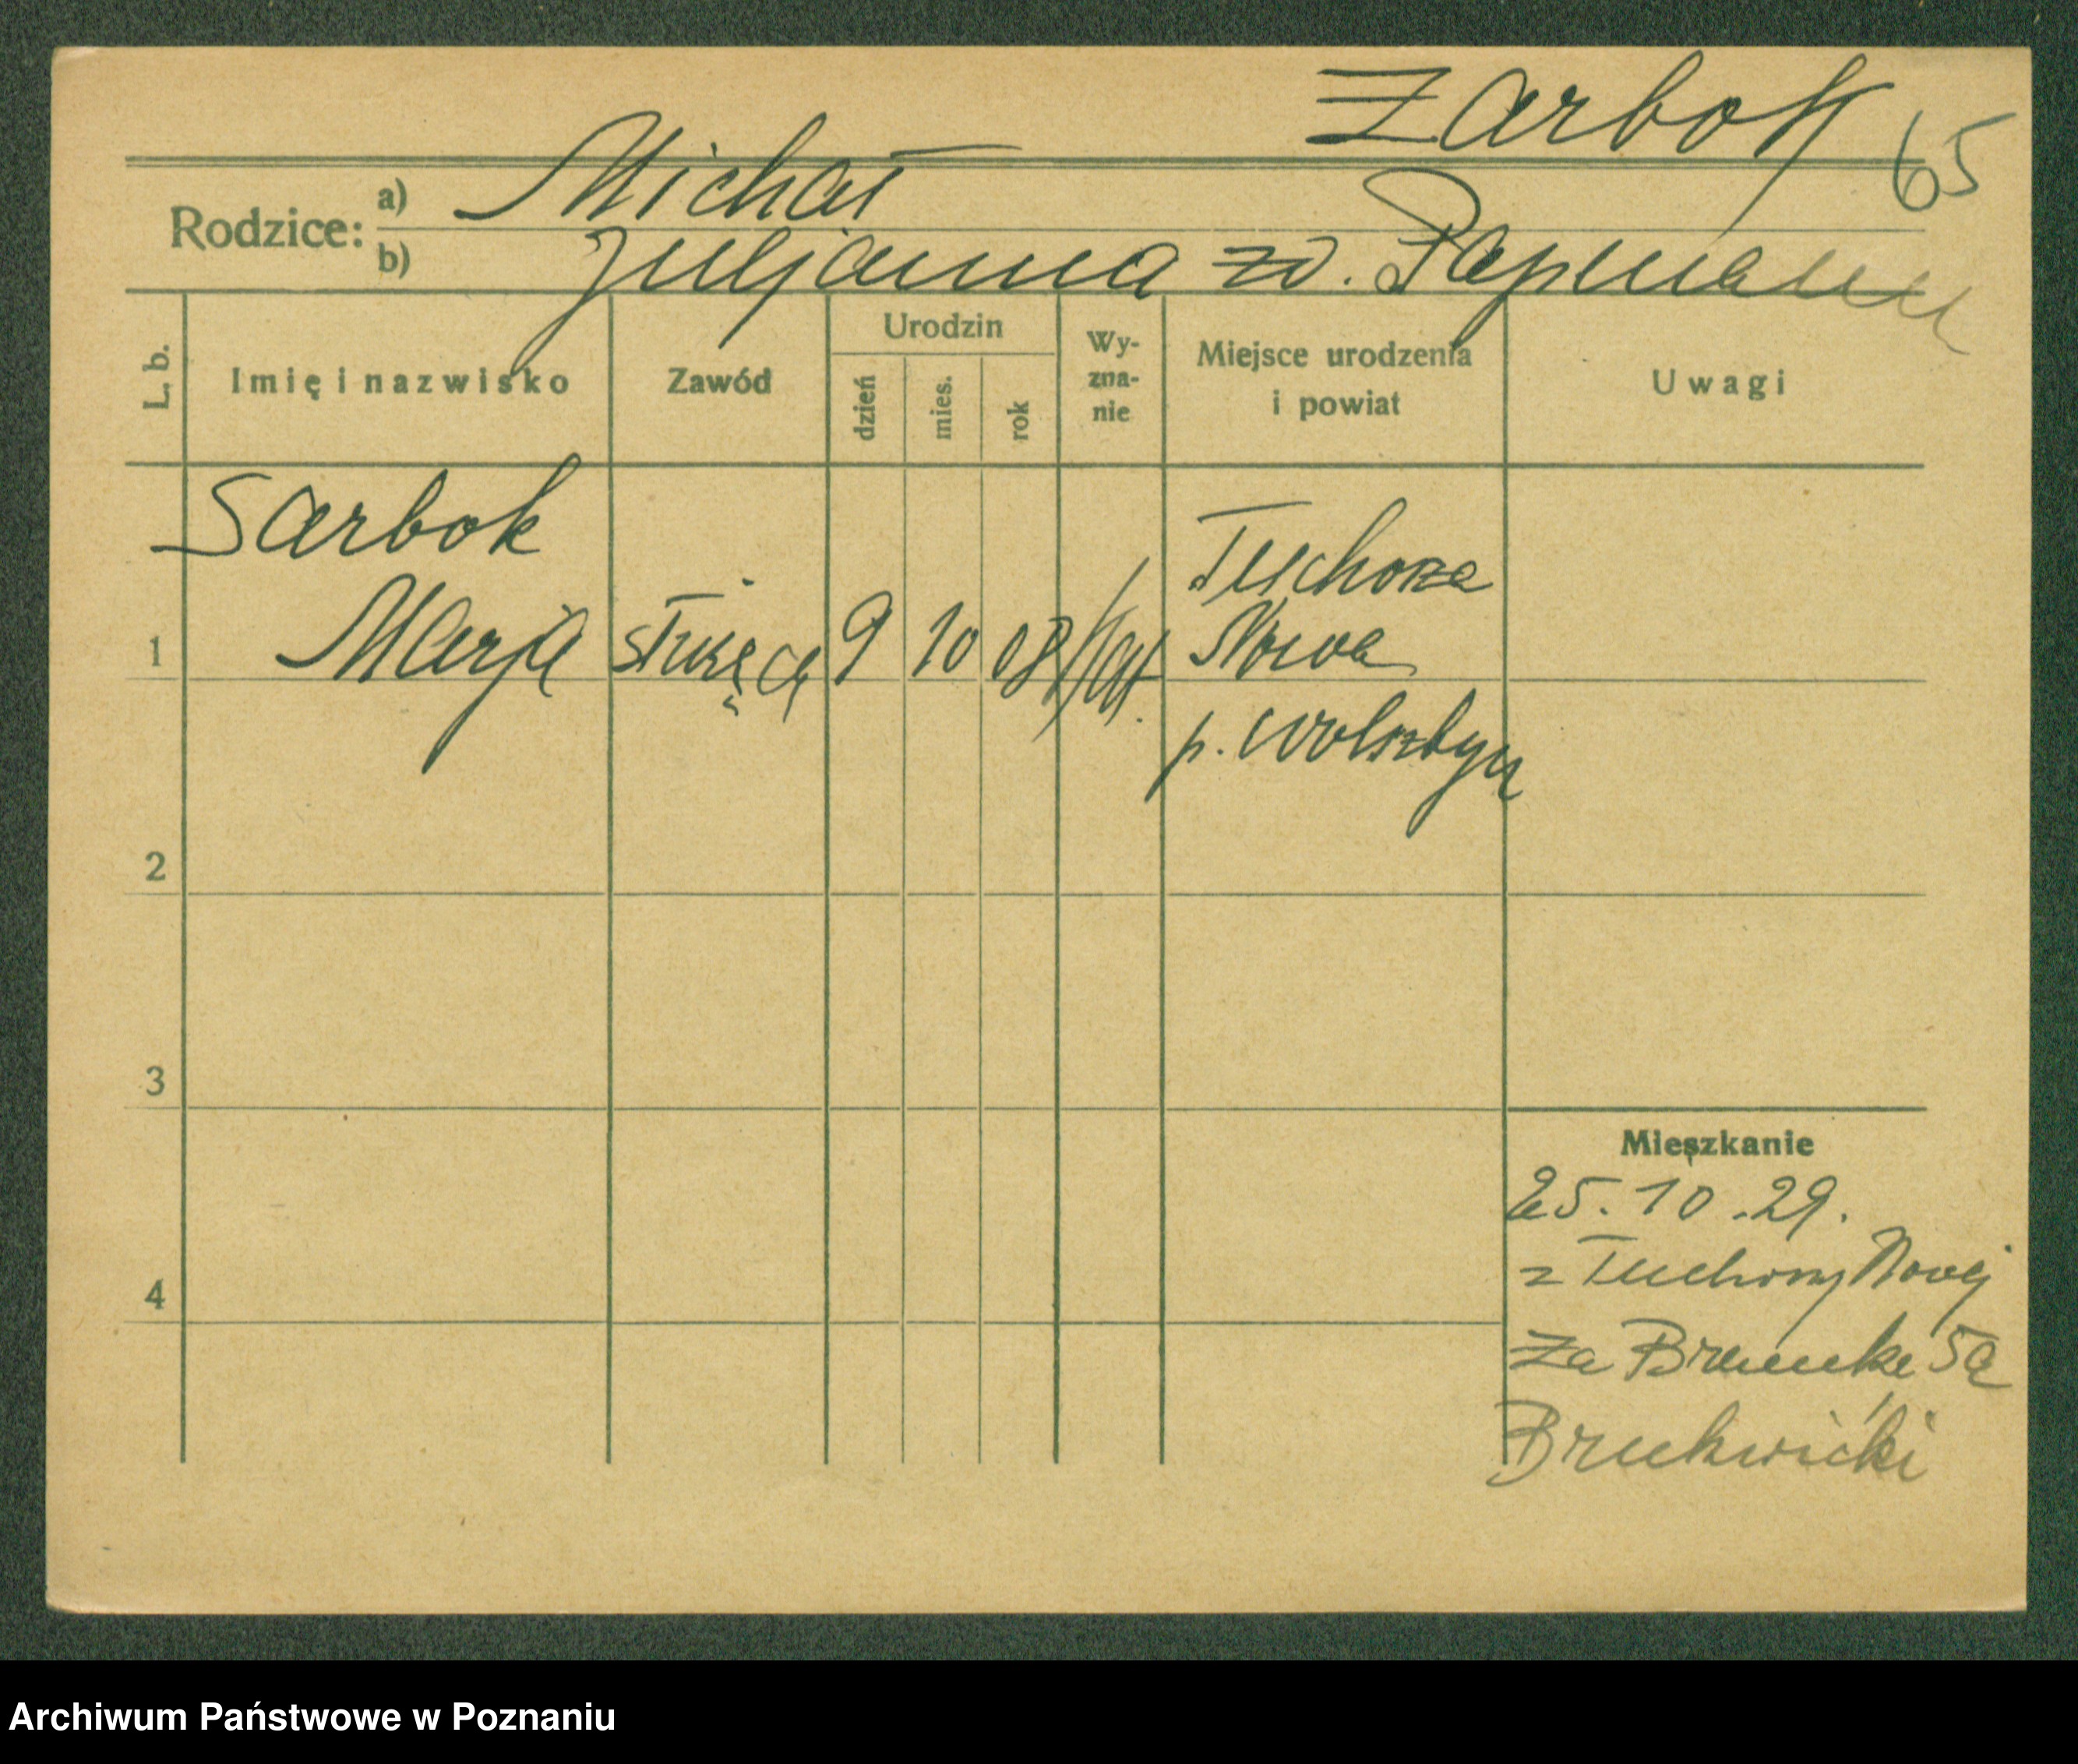 Zarbok
65
Rodzice: a) Michał
b) Juljanna zd. Papmann
L. b. Imię i nazwisko Zawód Urodzin dzień mies. rok Wy-zna-nie Miejsce urodzenia i powiat Uwagi
Sarbok
1 Marja służąca 9 10 08 kat. Tuchorza
Nowa
p. Wolsztyn
2
3
4
Mieszkanie
25.10.29.
z Tuchorzy Nowej
Za Bramką 5a
Archiwum Państwowe w Poznaniu